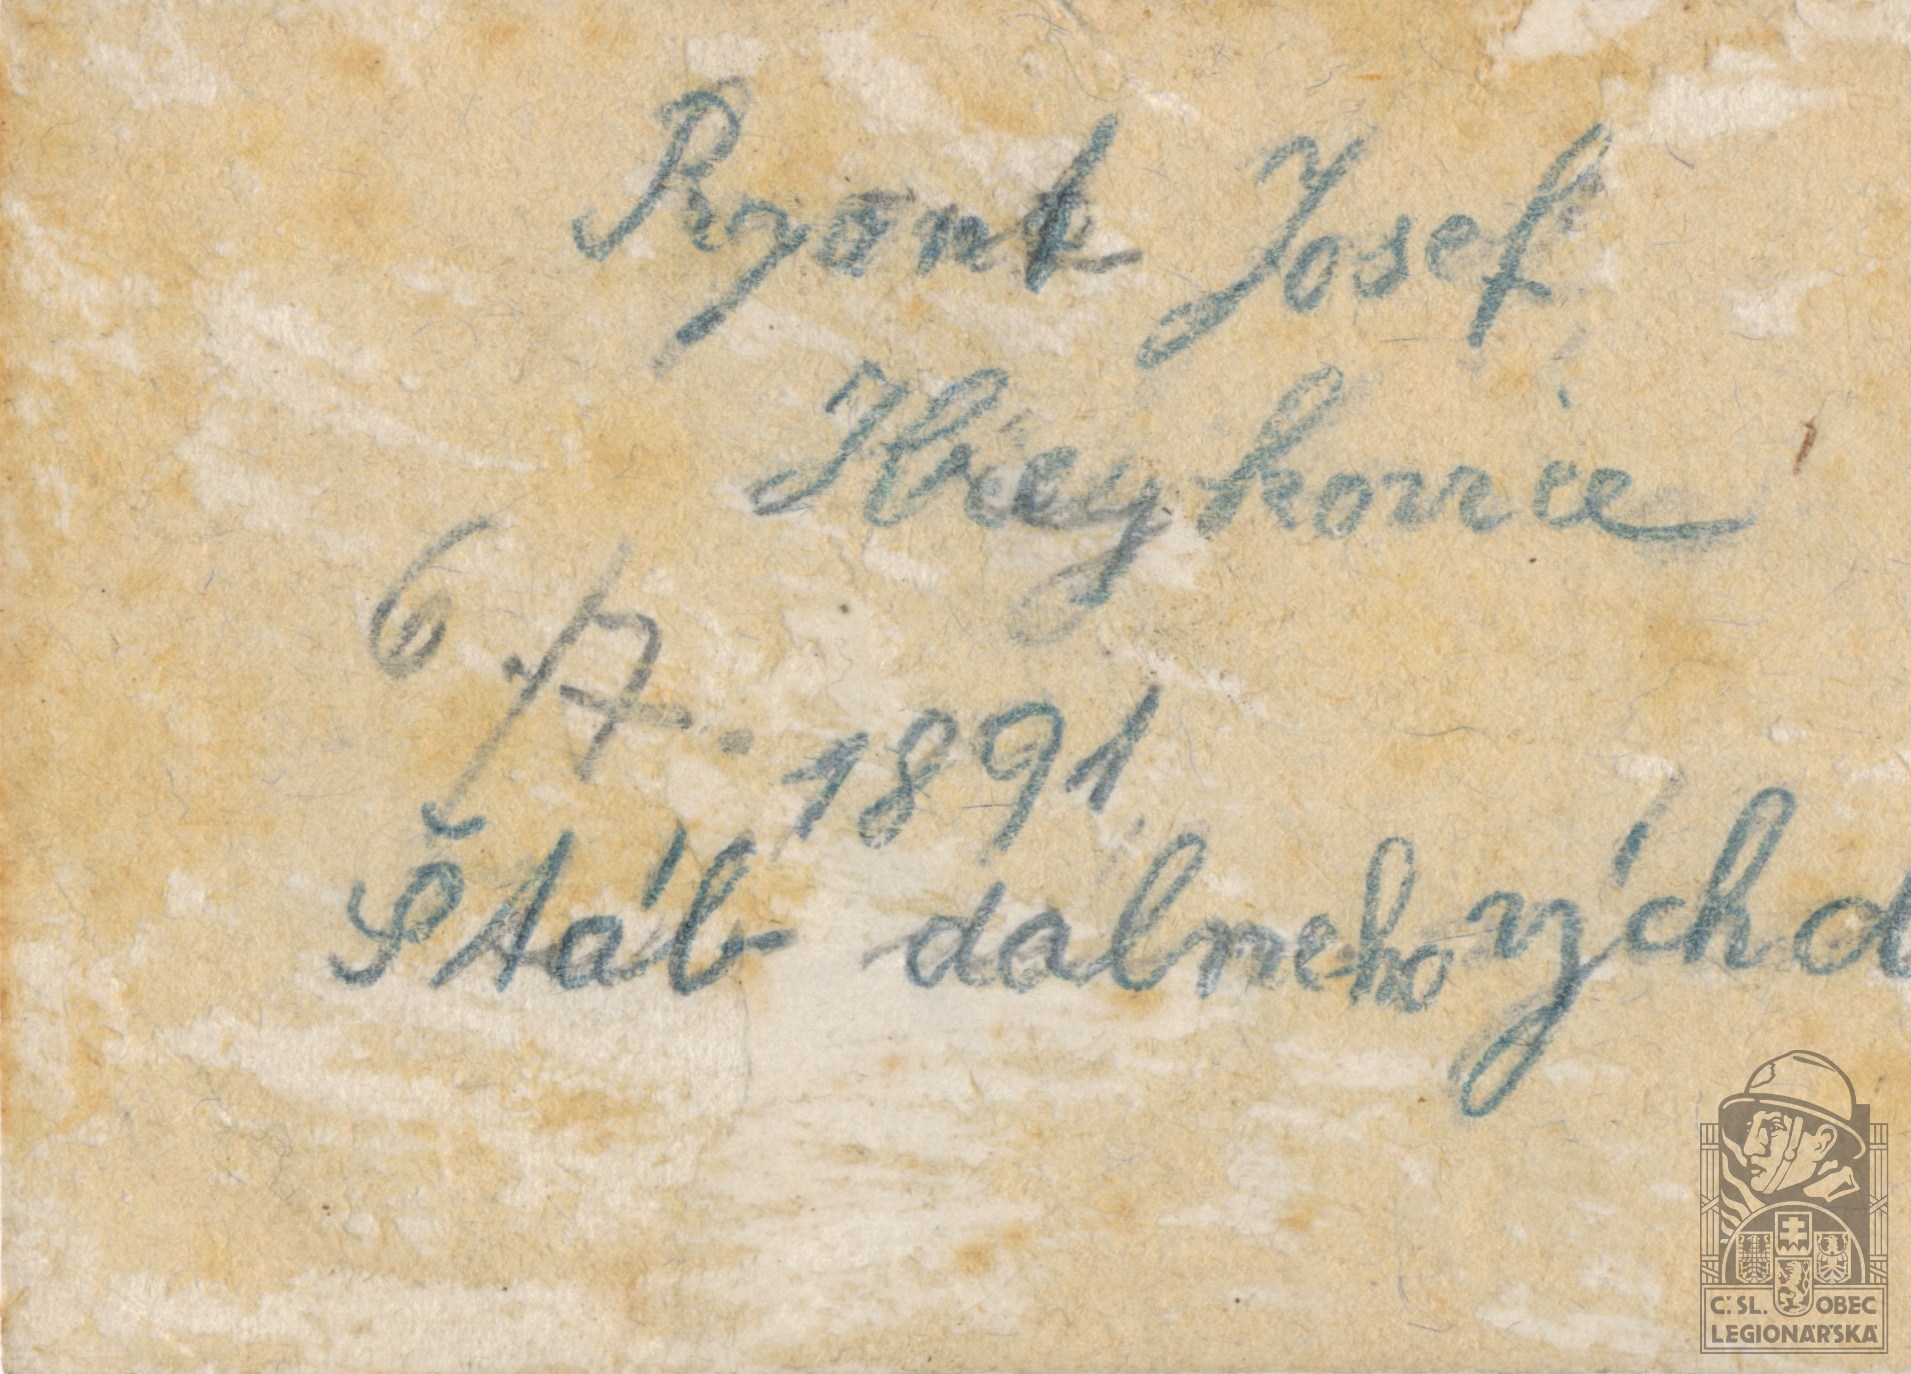 Ryant Josef
Hrejkovice
6./7. 1891
Štáb dalneho východ
Č.SL. OBEC
LEGIONÁŘSKÁ